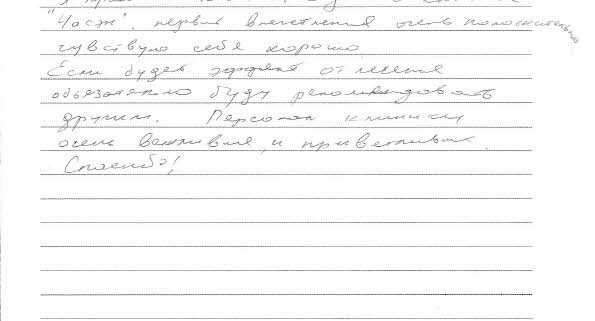 "Чосж". первые впечатления очень положительные
чувствую себя хорошо
Если будет эффект от лечения
обьязательно буду рекомендовать
другим. Персонал клиники
очень вежливые и приветливые.
Спасибо!